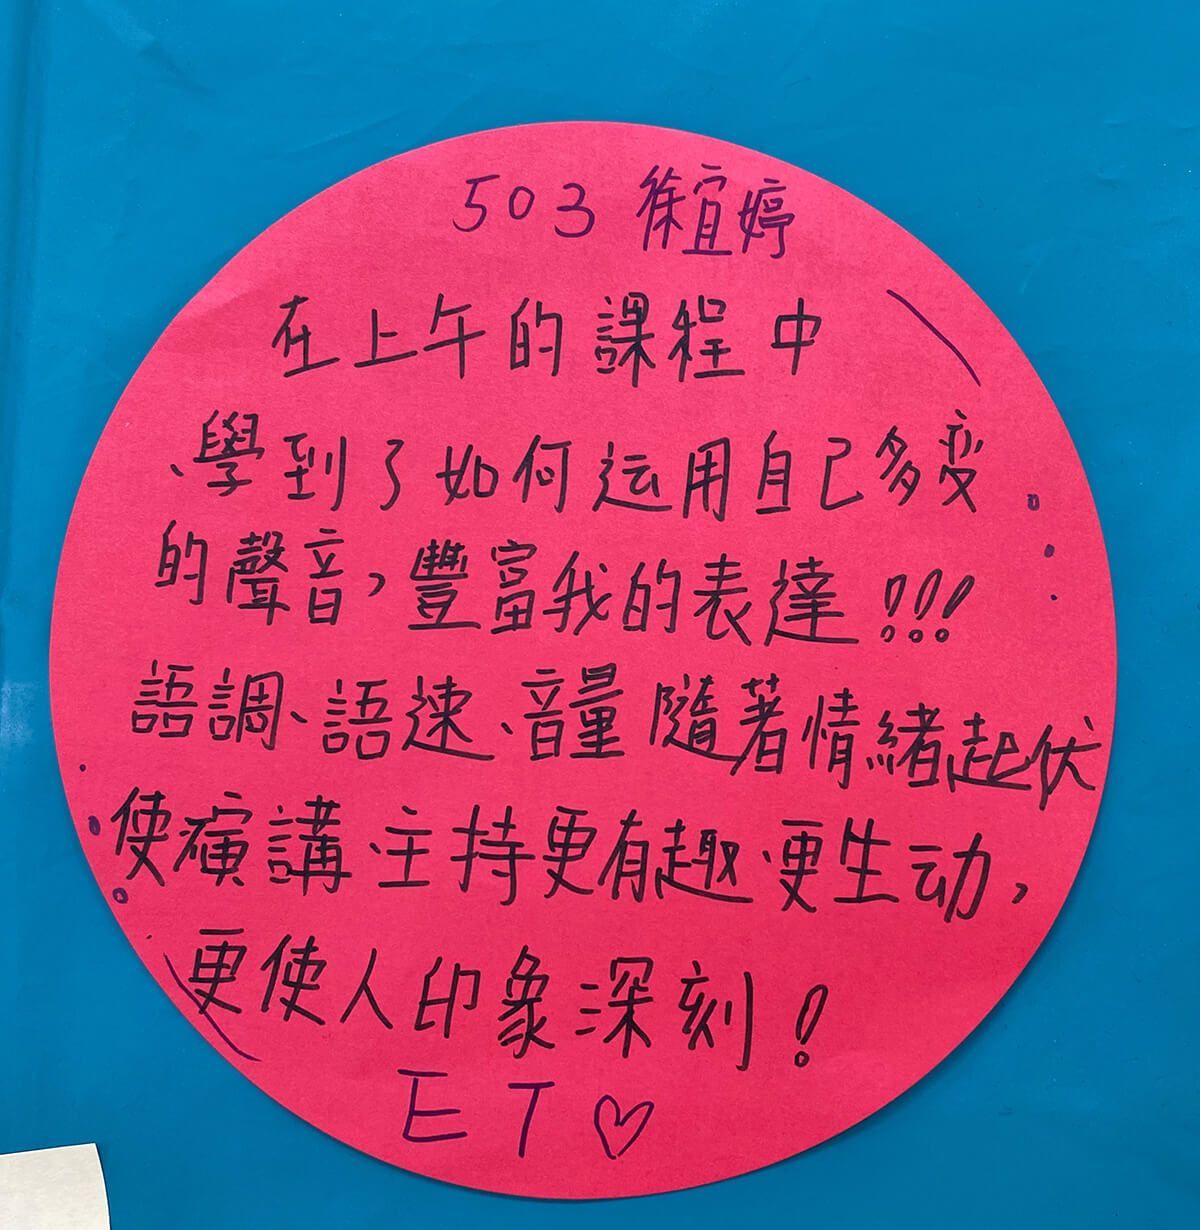 503 徐宜婷
在上午的課程中
學到了如何运用自己多变
的聲音,豐富我的表達!!!
語調、語速、音量隨著情緒起伏
使演講、主持更有趣、更生动,
更使人印象深刻!
ET♡